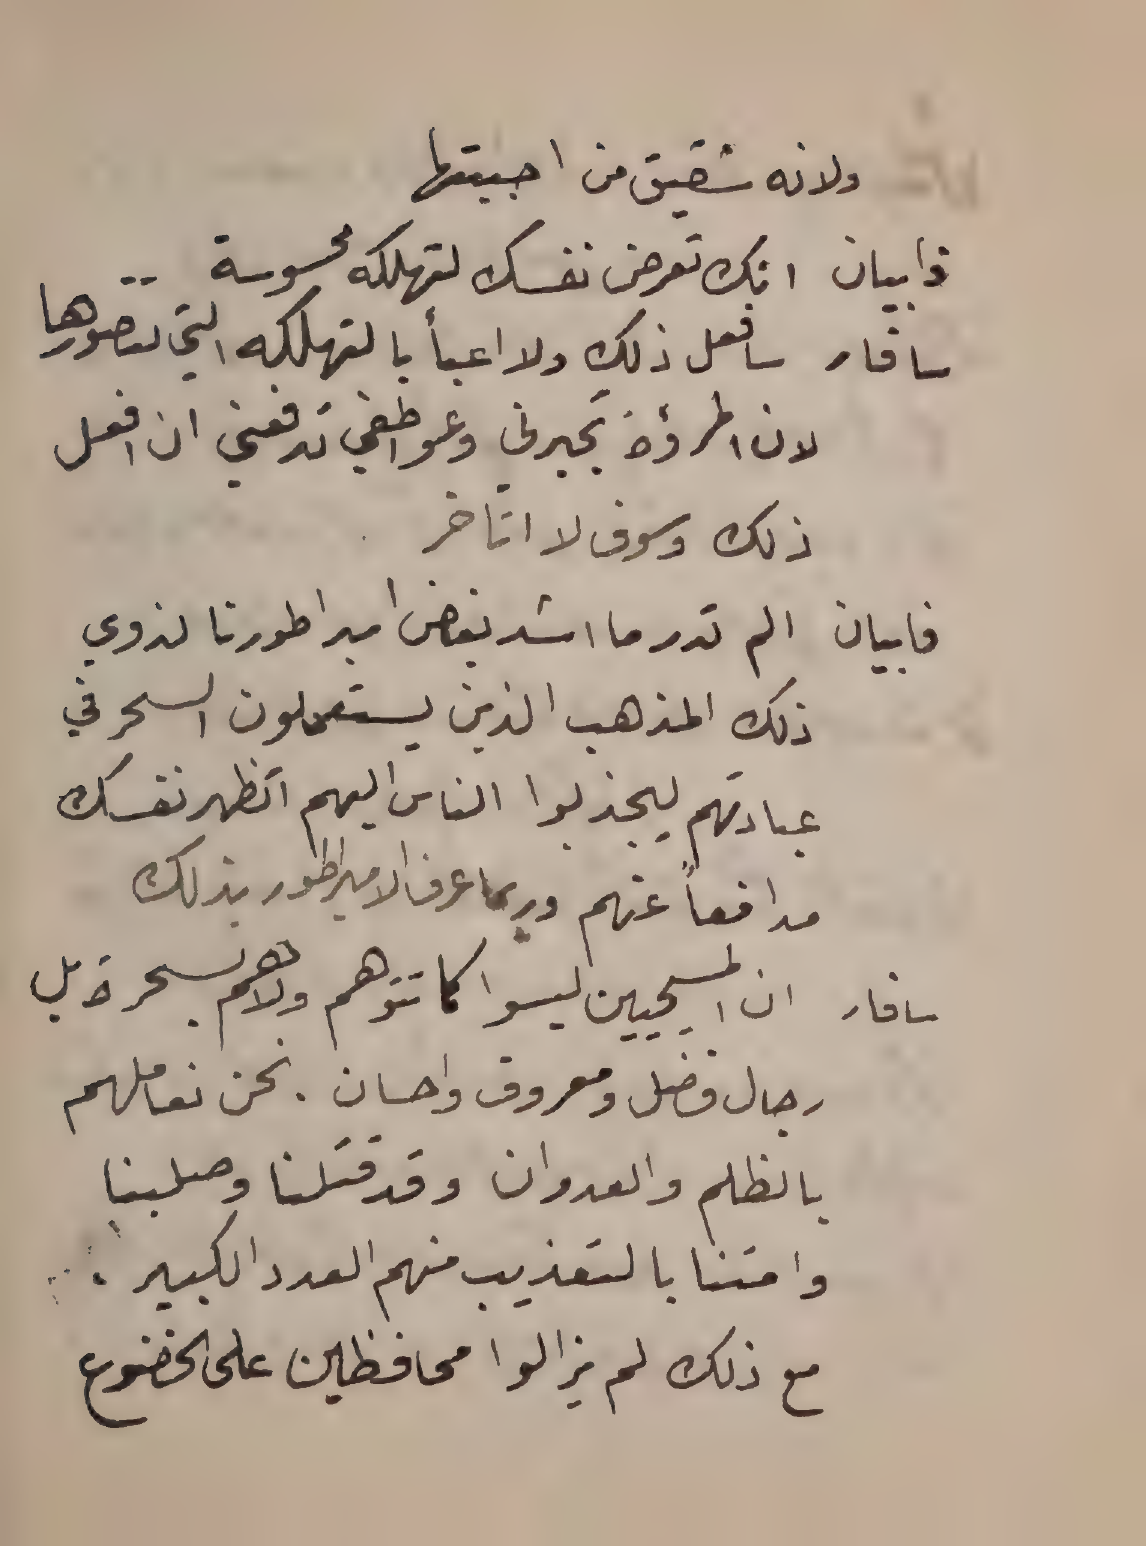 ولانه شقيق من احببتها
فابيان انك تعرض نفسك لتهلكه محسوسة ..
سافار سافعل ذلك ولا اعبأ بالتهلكه التي تتصورها
لان المرؤة تجبرني وعواطفي تدفعني ان افعل
ذلك وسوف لا اتاخر
فابيان الم تدر ما اشد بغض امبراطورنا لذوي
ذلك المذهب الذين يستعملون السحر في
عبادتهم ليجذبوا الناس اليهم اتظهر نفسك
مدافعاً عنهم وربما عرف الامبراطور بذلك
سافار ان المسيحيين ليسوا كما تتوهم ولاهم بسحرة بل
رجال فضل ومعروف واحسان . نحن نعاملهم
بالظلم والعدوان وقد قتلنا وصلبنا
وامتنا بالتعذيب منهم العدد الكبير .
مع ذلك لم يزالوا محافظين على الخضوع